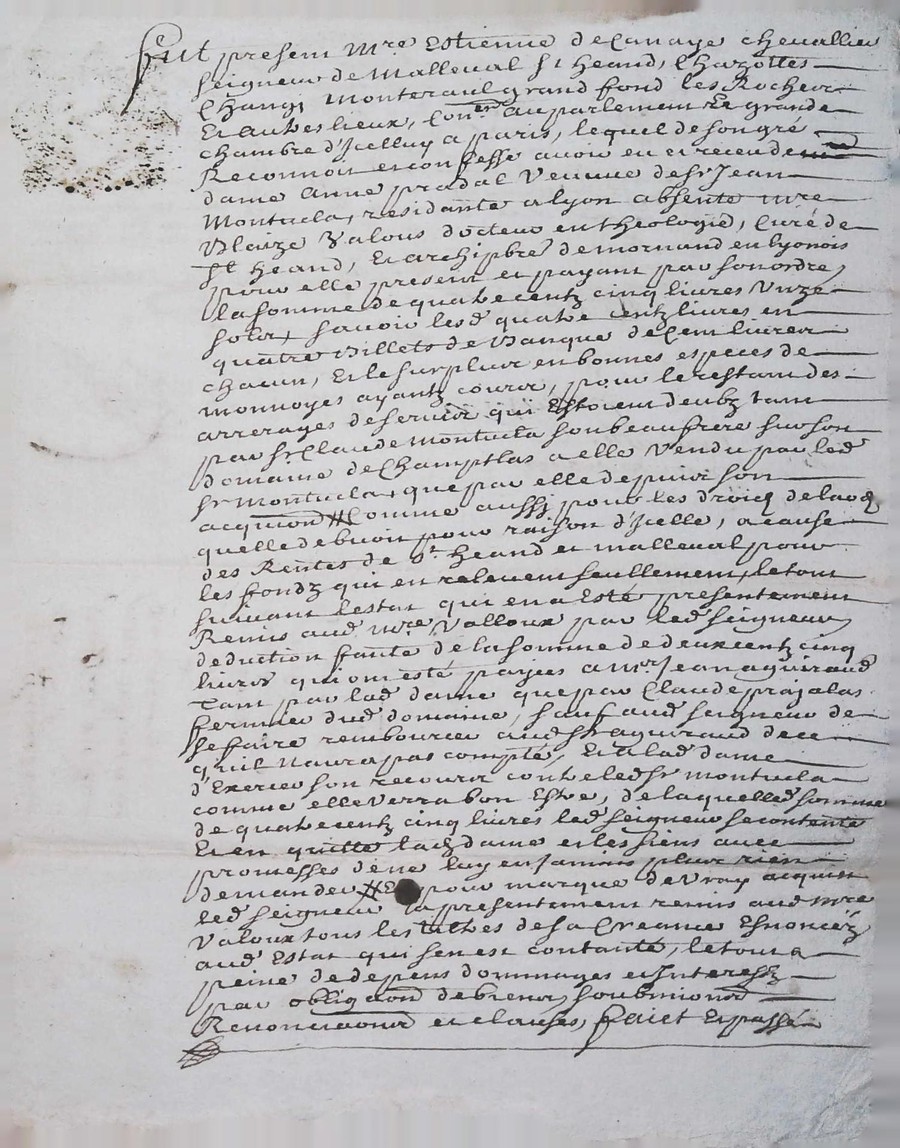 Fut present Mre Estienne deCanaye chevallier
seigneur de Malleval St heand, Chazottes
Changy Monteraul grand fond les Rocheor
Et autres lieux, Coner au parlement Et grande
chambre d'Icelluy a paris, lequel de son gré
Reconnoit et confesse avoir eu et receu de
dame Anne pradal Veuve de sr Jean
Montucla, residante a lyon absente mre
Blaize Valous docteur en theologie, Curé de
St heand, Et archiprè de mornand en lyonois
pour elle present et payant par son ordre,
la somme de quatre centz cinq livres Unze
solz, savoir lesd quatre centz livres en
quatre Billets de Banque de Cent livres
chacun, Et le surplus en bonnes especes de
monnoyes ayantz cours, pour le restant des
arrerages de servis qui Estoient deubz tant
par sr Claude Montucla son beau frere sur son
domaine de Champtlas a elle Vendu par led
sr Montucla, que par elle depuis son
acquion # Comme aussy pour les droicts de laodz
quelle debvoit pour raison d'Icelle, a cause
des Rentes de St heand et malleval pour
les fondz qui en relevent seullement, le tout
suivant lestat qui en a Esté presentement
Remis aud Mre Valloux par led seigneur,
deduction faite de la somme de deux centz cinq
livres qui ont esté payées a Mr Jean aguiraud
Tant par lad dame que par Claude prajalas
fermier dud domaine, sauf aud seigneur de
se faire rembourcer aud sr aguiraud de ce
qu'il N'aura pas compté, Et a lad dame
d'Exercer son recours contre led sr montucla
comme elle verra bon Estre, de laquelle somme
de quatre centz cinq livres led seigneur se contente
Et en quitte lad dame et les siens avec
promesses de ne luy en Jamais plus rien
demander # Et pour marque de Vray acquit
led seigneur a presentement remis aud mre
Valoux tous les titres de sa Creance Enoncéz
aud Estat qui sen est contanté, le tout a
peine de depens dommages et Interestz
par obligaon de biens, soubmions
Renonciaons et clauses, faict Et passé